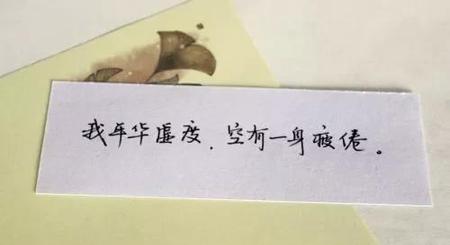 我年华虚度，空有一身疲倦。